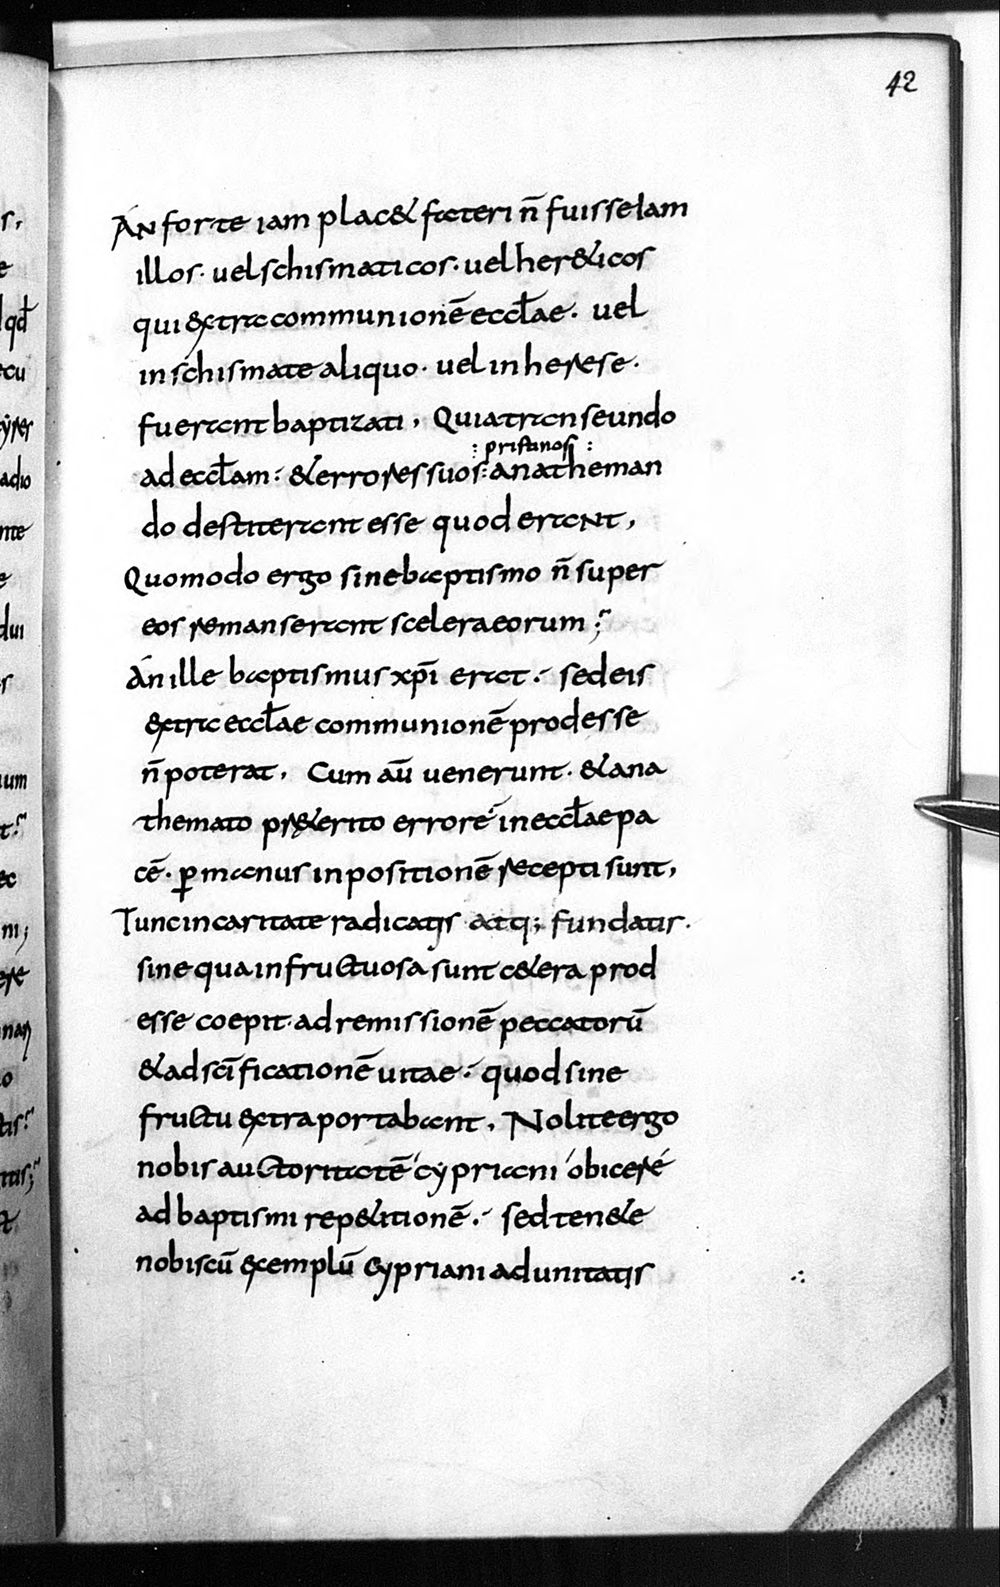 42
An forte iam plac& fateri n̄ fuisse lam
illos· uel schismaticos· uel her&icos
qui extra communionē eccłae· uel
in schismate aliquo· uel in herese·
fuerant baptizati, Quia transeundo
: pristinos :
ad eccłam· & errores suos: anatheman
do destiterant esse quod erant,
Quomodo ergo sine baptismo n̄ super
eos remanserant scelera eorum;
An ille baptismus xp̄i erat· sed eis
extra eccłae communionē prodesse
n̄ poterat, Cum aū uenerunt· & ana
themato pr&erito errorē in eccłae pa
cē· ꝑ manus inpositionē recepti sunt,
Tunc in caritate radicatis atq; fundatis·
sine qua infructuosa sunt c&era prod
esse coepit· ad remissionē peccatorū
& ad sc̄ificationē uitae· quod sine
fructu extra portabant, Nolite ergo
nobis auctoritatē cypriani obicere
ad baptismi rep&itionē· sed ten&e
nobiscū exemplū Cypriani ad unitatis